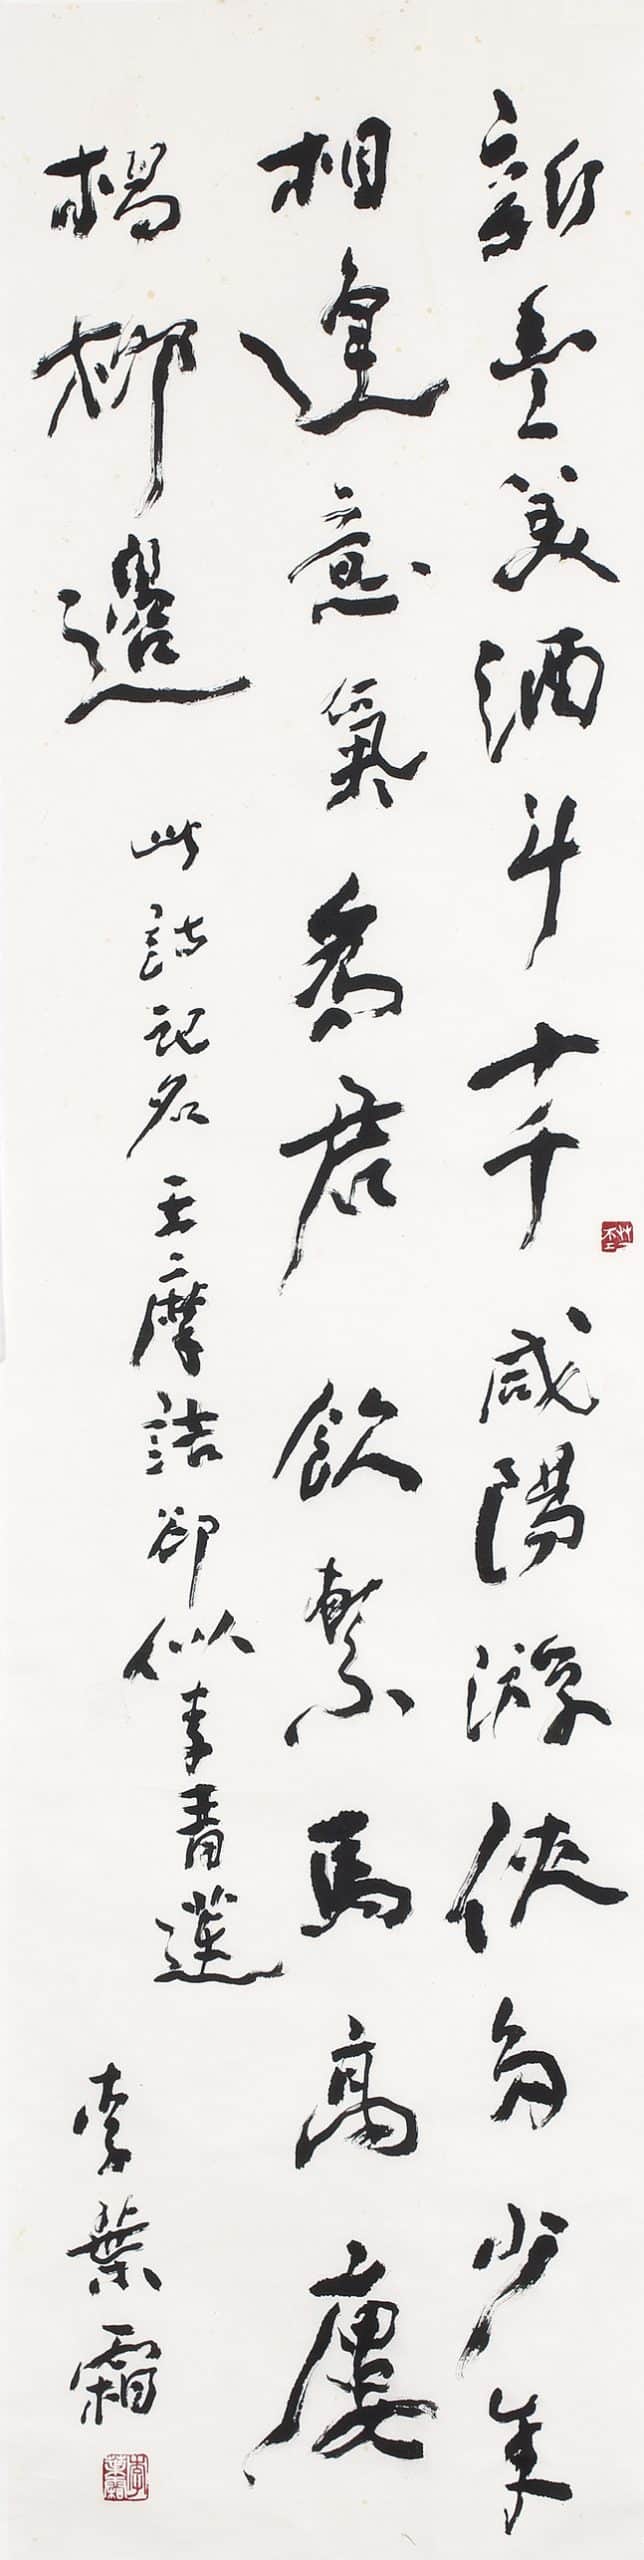 新豐美酒斗十千咸陽游俠多少年
相逢意氣為君飲繫馬高廔
楊柳邊
此詩記名王摩詰卻似李青蓮
李葉霜
李葉霜